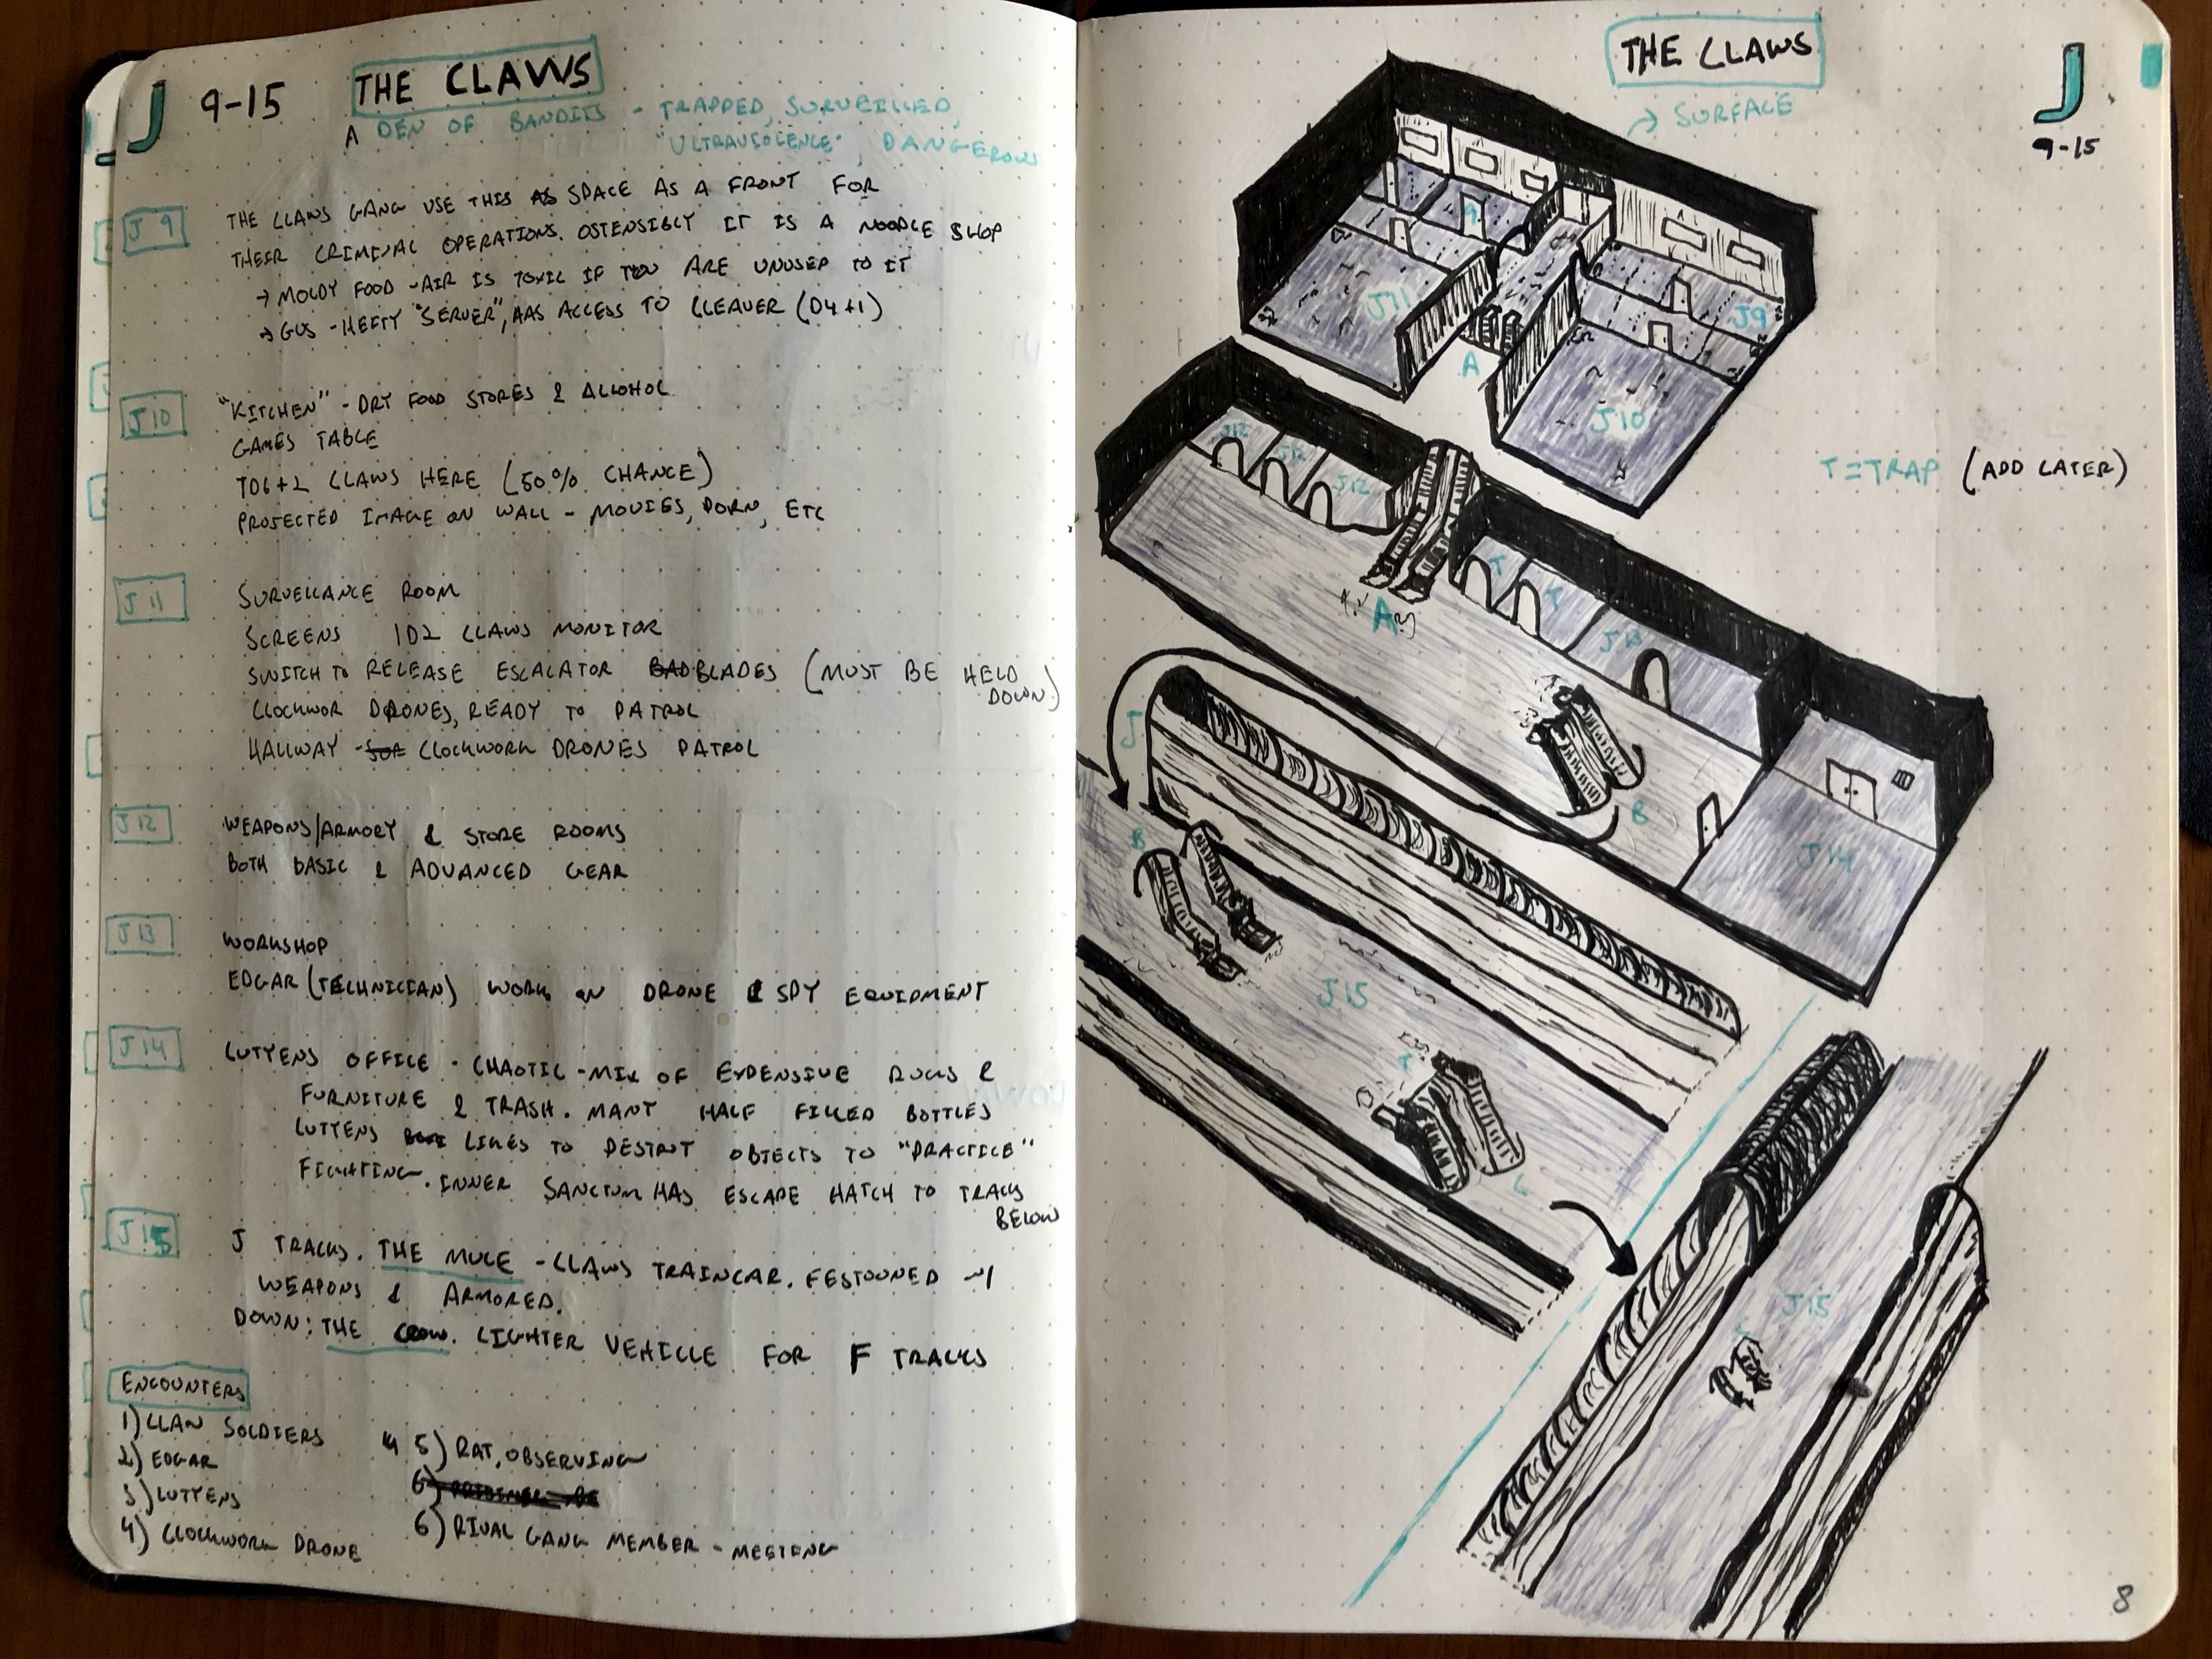 J 9-15 THE CLAWS
A DEN OF BANDITS - TRAPPED, SURVEILLED,
"ULTRAVIOLENCE", DANGEROUS
J9 THE CLAWS GANG USE THIS AS SPACE AS A FRONT FOR
THEIR CRIMINAL OPERATIONS. OSTENSIBLY IT IS A NOODLE SHOP
→ MOLDY FOOD - AIR IS TOXIC IF YOU ARE UNUSED TO IT
→ GUS - HEFTY "SERVER", HAS ACCESS TO CLEAVER (D4+1)
J10 "KITCHEN" - DRY FOOD STORES & ALCOHOL
GAMES TABLE
1D6+2 CLAWS HERE (50% CHANCE)
PROJECTED IMAGE ON WALL - MOVIES, PORN, ETC
J11 SURVELLANCE ROOM
SCREENS 1D2 CLAWS MONITOR
SWITCH TO RELEASE ESCALATOR BLADES (MUST BE HELD
DOWN)
CLOCKWOR DRONES, READY TO PATROL
HALLWAY - CLOCKWORK DRONES PATROL
J12 WEAPONS/ARMORY & STORE ROOMS
BOTH BASIC & ADVANCED GEAR
J13 WORKSHOP
EDGAR (TECHNICIAN) WORK ON DRONE & SPY EQUIPMENT
J14 LUTYENS OFFICE - CHAOTIC - MIX OF EXPENSIVE RUGS &
FURNITURE & TRASH. MANY HALF FILLED BOTTLES
LUTYENS LIKES TO DESTROY OBJECTS TO "PRACTICE"
FIGHTING. INNER SANCTUM HAS ESCAPE HATCH TO TRACKS
BELOW
J15 J TRACKS. THE MULE - CLAWS TRAINCAR. FESTOONED W/
WEAPONS & ARMORED.
DOWN: THE CROW. LIGHTER VEHICLE FOR F TRACKS
ENCOUNTERS
1) CLAN SOLDIERS
2) EDGAR
3) LUTYENS
4) CLOCKWORK DRONE
5) RAT, OBSERVING
6) RIVAL GANG MEMBER - MEETING
THE CLAWS
→ SURFACE
J
9-15
9
J11
J9
A
J10
T=TRAP (ADD LATER)
J12
J12
J12
T
T
J13
A
B
J14
J
B
J15
C
J15
8